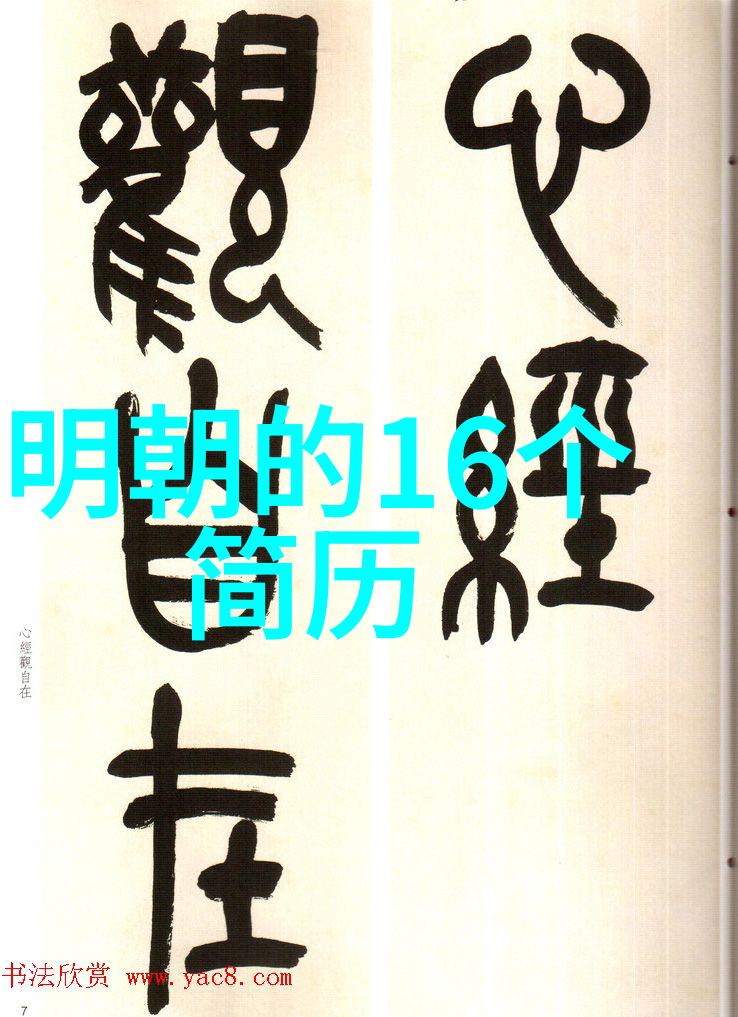 心經
觀自在
明朝的16个
简历
心經觀自在
书法欣赏 www.yac8.com
7